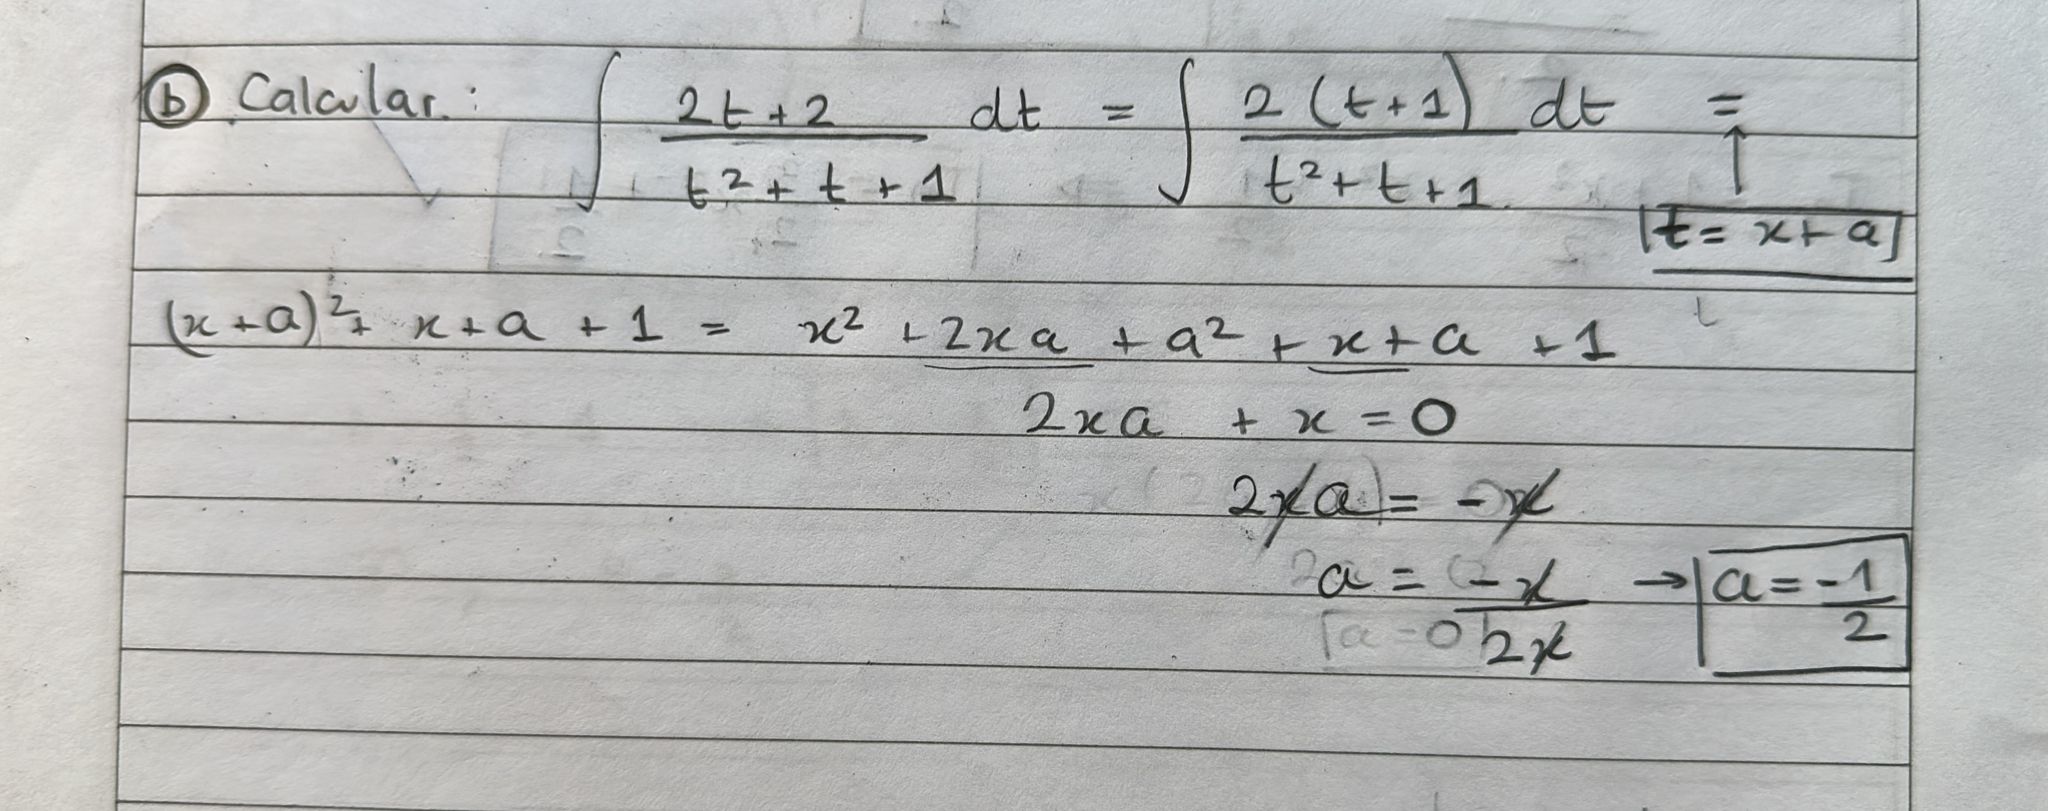 ⓑ Calcular: ∫ (2t+2)/(t²+t+1) dt = ∫ 2(t+1)/(t²+t+1) dt =
↑
t = x+a
(x+a)² + x+a+1 = x² + 2xa + a² + x+a+1
2xa + x = 0
2xa = -x
a = -x/2x → a = -1/2